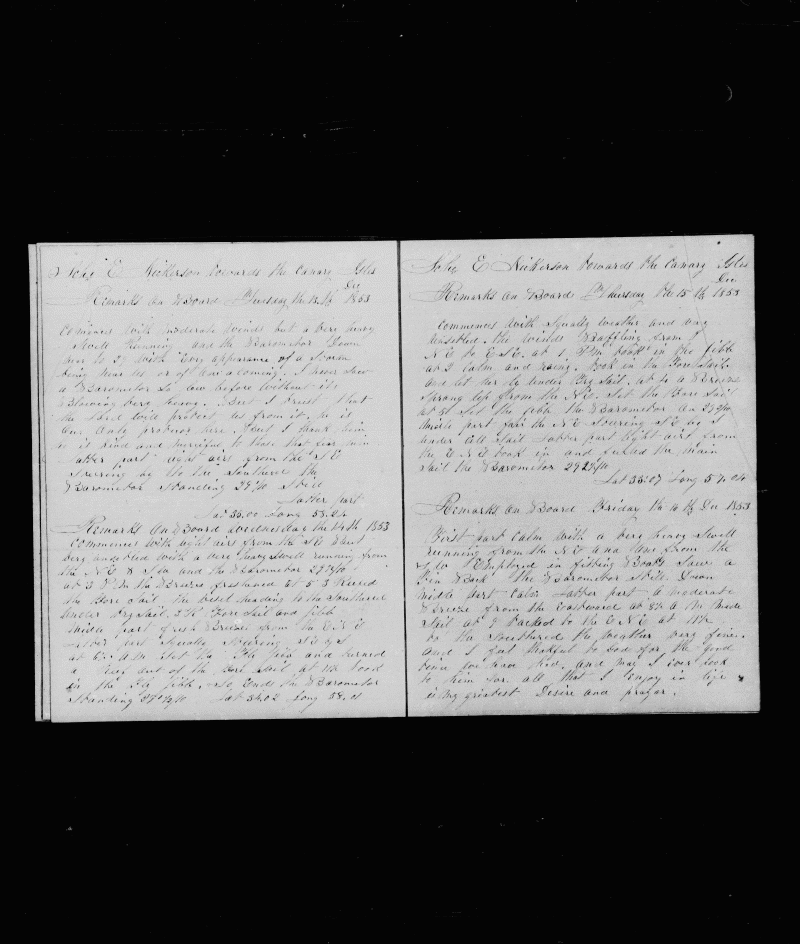 John E Nickerson towards the Canary Isles
Dec
Remarks on Board Tuesday the 13th 1853
Comences with moderate winds but a very heavy
Swell Running and the Barometor Down
near to 29 with Every appearance of a Storm
being near us or of one a coming. I never saw
a Barometor So low before without its
Blowing very heavy. But I trust that
the Lord will protect us from it. he is
our only protector here. And I thank him
he is kind and merciful to those that fear him
Latter part light airs from the SE
Steering by to the Southerd the
Barometor Standing 29 /10 Still
Latter part
Lat 35.00 Long 58.24
Remarks on Board Wednesday the 14th 1853
Commences with light airs from the SE but
very unsetled with a very heavy Swell running from
the NE & and the Barometor 29 /10
at 3 PM the Breeze freshened at 5 Reefed
the Fore Sail the Vesel heading to the Southerd
under Try Sail, Fore Sail and Jibb
Midle part fresh Breezes from the E N E
Latter part Squaly Steering SE by S
at A.M Set the Jibb and turned
a Reef out of the Fore Sail at M took
in the Jibb, So Ends the Barometor
Standing 29 /10 Lat 34.02 Long 58.01
John E Nickerson towards the Canary Isles
Dec
Remarks on Board Thursday the 15th 1853
commences with Squaly weather and very
unsetled. the winds Baffling from
NE to E SE. at 1 PM took in the jibb
at 2 calm and raing. took in the Fore Sail
and let her lay under Try Sail. at 4 a Breeze
sprung up from the NE. Set the Fore Sail
at 5 Set the jibb. the Barometor On 29 /10
Midle part from the NE Steering SE by S
under all Sail Latter part light airs from
the E N E took in and furled the main
Sail the Barometor 29 /10
Lat 33.07 Long 57.04
Remarks on Board Friday the 16th Dec 1853
First part calm with a very heavy Swell
running from the NE and One from the
Employed in fitting Boats Saw a
Fin Back the Barometor Still Down
midle part calm Latter part a moderate
Breeze from the Eastward at 8 A M made
Sail at 9 tacked to the E N E at M
to the Southerd the weather very fine.
and I feel thankful to God for the good
being for hear tied. and may I ever look
to him for all that I enjoy in life
is my greatest Desire and prayer.